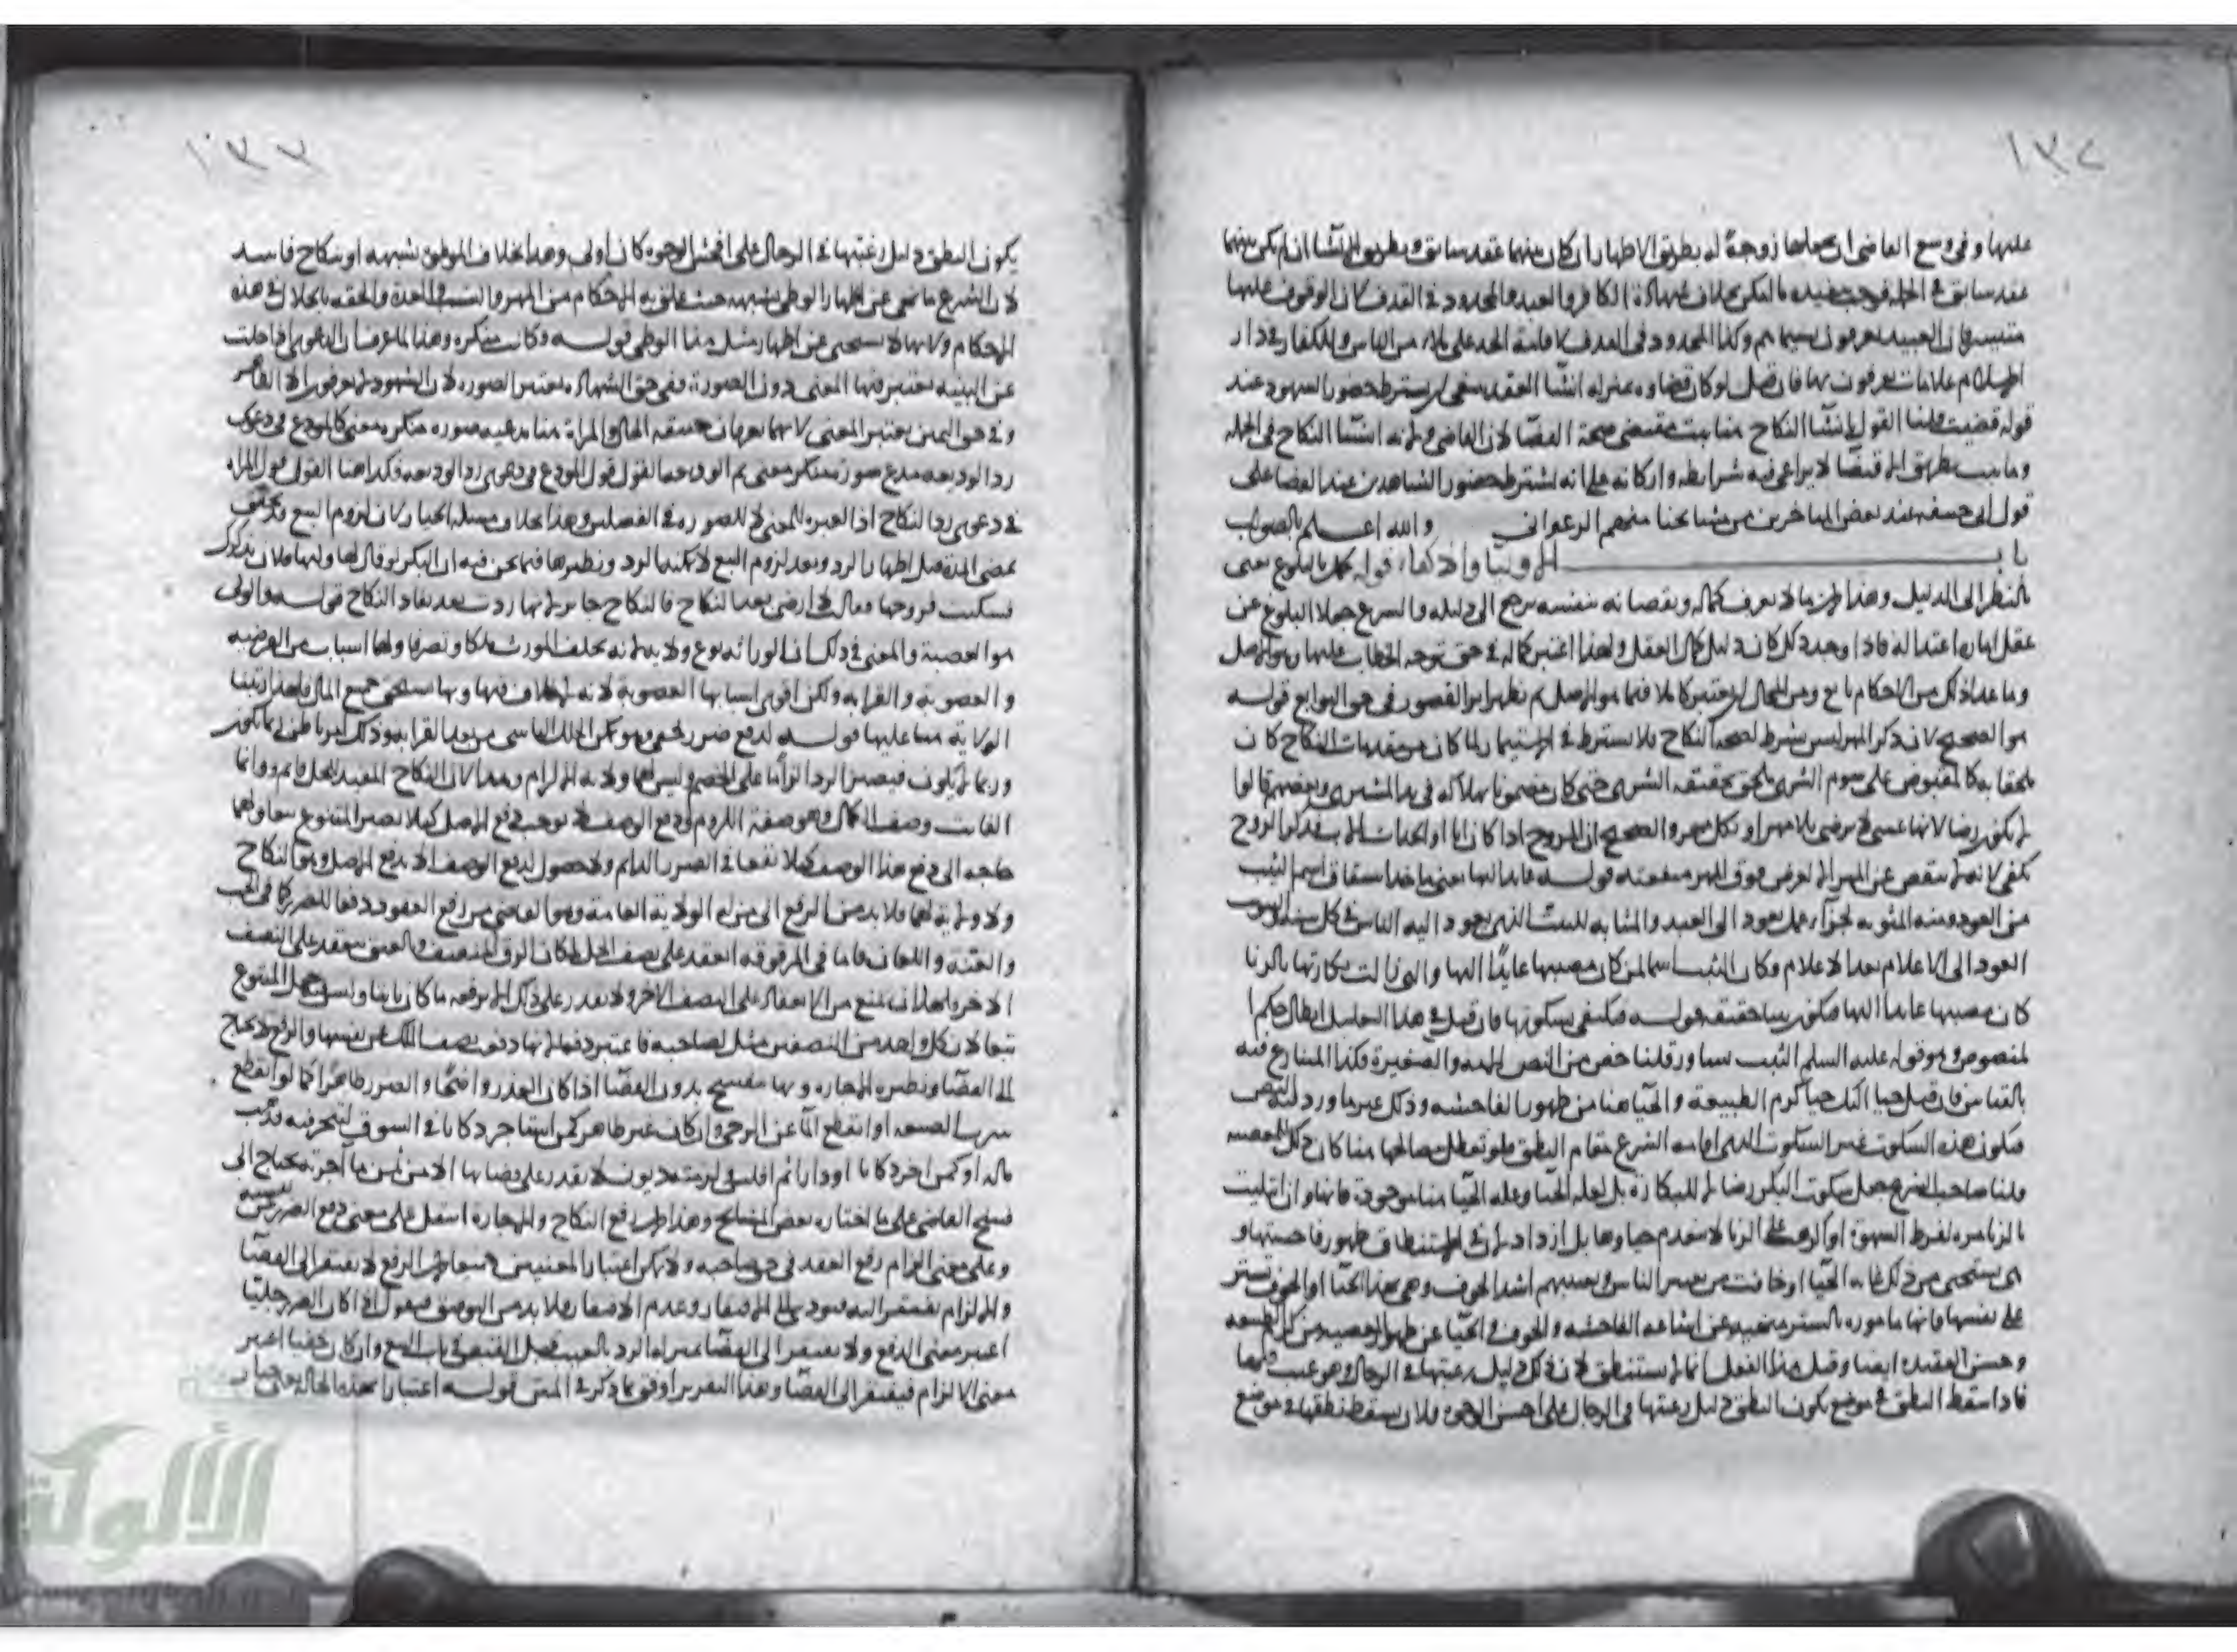 ١٣٢
عليها وفي وسع القاضي ان يجعلها زوجة له بطريق الاظهار ان كان بينهما عقد سابق وبطريق الانشا ان لم يكن بينهما
عقد سابق في الجملة فوجب تنفيذه بخلاف شهادة الكافر والعبد والمحدود في القذف لان الوقوف عليها
متيسر فان العبيد يعرفون بسيماهم وكذا المحدود في القذف لاقامة الحد على ملاء من الناس وللكفار في دار
الاسلام علامات يعرفون بها فان قيل لو كان قضاوه بمنزلة انشا العقد ينبغي ان يشترط حضور الشهود عند
قوله قضيت قلنا القول بانشا النكاح هنا يثبت مقتضى صحة القضا لان القاضي انشا النكاح في الجملة
وما يثبت بطريق الاقتضا لا يراعى فيه شرايطه واركانه على انه يشترط حضور الشاهدين عند القضا على
قول ابي حنيفة عند بعض المتاخرين من مشايخنا منهم الزعفراني والله اعلم بالصواب
باب الاوليا والاكفاء قوله تحمل بالبلوغ يعني
بالنظر الى الدليل وهذا لان ما لا يعرف كماله ونقصانه بنفسه يرجع الى دليله والشرع جعل البلوغ عن
عقل اعتداله فاذا وجد ذلك كان دليل كمال العقل ولهذا اعتبر كماله في حق توجه الخطاب عليها وهو الاصل
وما عدا ذلك من الاحكام تابع ومن المحال ان يعتبر كاملا فيما هو الاصل ثم يظهر اثر القصور في حق التوابع قوله
هو الصحيح لان ذكر المهر ليس بشرط لصحة النكاح فلا يشترط في الاستيمار لما كان من مقدمات النكاح كان
ملحقا به كالمقبوض على سوم الشرى يلحق بحقيقة الشرى حتى كان مضمونا بهلاكه في يد المشتري وبعضهم قالوا
لم يكن رضا لانها عسى لا ترضى بلا مهر او بكل مهر والصحيح ان المزوج اذا كان ابا او
يكفي لانه لا ينقص عن المهر الا لغرض فوق المهر منفعته قوله يعني ماخذ استقاق اسم الثيب
من العود ومنه المثوبة لجزاء عمل يعود الى العبد والمثابة للبيت الذي يعود اليه الناس في كل سنة والتثويب
العود الى الاعلام بعد الاعلام وكان الثيب اسما لمن كان مصيبها عايدا اليها والتي زالت بكارتها بالزنا
كان مصيبها عايدا اليها فتكون ثيبا حقيقة قوله فيكتفى بسكوتها فان قيل في هذا التعليل ابطال حكم
المنصوص وهو قوله عليه السلم الثيب تشاور قلنا خص من النص الامة والصغيرة فكذا المتنازع فيه
بالقياس فان قيل حيا البكر حيا كرم الطبيعة والحيا هنا من ظهور الفاحشة وذلك غير ما ورد به النص
فيكون هذا السكوت غير السكوت الذي اقامه الشرع مقام النطق
قلنا صاحب الشرع جعل سكوت البكر رضا لا للبكارة بل لعلة الحيا وعلة الحيا هنا موجودة فانها وان ابتليت
بالزنا مرة لفرط الشهوة او اكرهت على الزنا لا ينعدم حياوها بل ازداد لان في الاستنطاق ظهور فاحشتها
وهي تستحيي من ذلك غاية الحيا او خافت من تعيير الناس اشد الخوف وهي بهذا الحيا او الخوف تستر
على نفسها فانها مامورة بالستر منهية عن اشاعة الفاحشة والخوف والحيا عن ظهور المعصية من كرم الطبيعة
وحسن العقيدة ايضا وقيل هذا الفعل انما لا تستنطق لان في ذلك دليل رغبتها في الرجال وهو عيب فيها
فاذا سقط النطق في موضع يكون النطق دليل رغبتها في الرجال على احسن الوجوه فلان يسقط نطقها في موضع
١٣٣
يكون النطق دليل رغبتها في الرجال على افحش الوجوه كان اولى وهذا بخلاف الموطؤة بشبهة او بنكاح فاسد
لان الشرع ما نهى عن اظهار الوطي بشبهة حيث علق به الاحكام من المهر والنسب والعدة والنفقة بخلاف هذه
الاحكام ولانها لا تستحيي عن اظهار مثل هذا الوطي قوله وكانت منكرة وهذا لما عرف ان الدعوى اذا خلت
عن البينة يعتبر فيها المعنى دون الصورة ففي حق الشهادة يعتبر الصورة لان الشهود لا يعرفون الا الظاهر
وفي حق اليمين يعتبر المعنى لانهما يعرفان حقيقة الحال والمراة هنا مدعية صورة منكرة معنى كالمودع في دعوى
رد الوديعة مدع صورة منكر معنى ثم القول قول المودع في دعوى رد الوديعة فكذا هنا القول قول المراة
في دعوى رد النكاح اذ العبرة للمعنى لا للصورة في الفصلين وهذا بخلاف مسئلة الخيار لان لزوم البيع قد تحقق
بمضي المدة قبل اظهار الرد وبعد لزوم البيع لا يمكنه الرد ونظيرها فيما نحن فيه ان البكر لو قال لها وليها فلان يذكرك
فسكتت فزوجها فقالت لا ارضى بعد النكاح فالنكاح جايز لانها ردت بعد نفاذ النكاح قوله والولي
هو العصبة والمعنى في ذلك ان الوراثة نوع ولاية لانه يخلف المورث ملكا وتصرفا ولها اسباب من الفرضية
والعصوبة والقرابة ولكن اقوى اسبابها العصوبة لانه لا خلاف فيها وبها يستحق جميع المال
الولاية هنا عليها قوله لدفع ضرر خفي وهو تمكن الخلل الناشي من بعد القرابة وذلك امر باطني
وربما لا يكون فيصير الرد الزاما على الخصم وليس لهما ولاية الالزام وهذا لان النكاح المفيد للحل قايم وانما
الفايت وصف الكمال وهو صفة اللزوم ودفع الوصف لا يوجب دفع الاصل كيلا يصير المتبوع تبعا ولهما
حاجة الى دفع هذا الوصف كيلا يقعا في الضرر الدايم ولا حصول لدفع الوصف الا بدفع الاصل وهو النكاح
ولا ولاية لهما فلا بد من الرفع الى من له الولاية العامة وهو القاضي من رفع العقود دفعا للضرر كما في الجب
والعنة واللعان فاما في المرقوقة انعقد على نصف الحل لان الرق المنصف وبالعتق ينعقد على النصف
الاخر ولها ان تمنع من الانعقاد على النصف الاخر ولا تقدر على ذلك الا برفع ما كان ثابتا وليس جعل المتبوع
تبعا لان كل واحد من النصفين مثل لصاحبه فاعتبر دفعا لانها دفعت نصف الملك عن نفسها والدفع لا يحتاج
الى القضا ونظيره الاجارة وبها تنفسخ بدون القضا اذا كان العذر واضحا والضرر ظاهرا كما لو انقطع
شرب الضيعة او انقطع الما عن الرحى وان كان غير ظاهر كمن استاجر دكانا في السوق ليتجر فيه فذهب
ماله او كمن اجر دكانا او دارا ثم افلس ولزمته ديون لا يقدر على قضايها الا من ثمن ما آجره يحتاج الى
فسخ القاضي على ما اختاره بعض المشايخ وهذا لان رفع النكاح والاجارة اشتمل على معنى دفع الضرر عن نفسه
وعلى معنى الزام رفع العقد في حق صاحبه ولا يمكن اعتبار المعنيين لان الرفع لا يفتقر الى القضا
والالزام يفتقر اليه فيؤدي الى الافتقار وعدم الافتقار فلا بد من التوفيق فنقول اذا كان الضرر جليا
اعتبر معنى الدفع ولا يفتقر الى القضا بمنزلة الرد بالعيب قبل القبض في باب البيع وان كان خفيا اعتبر
معنى الالزام فيفتقر الى القضا وهذا التقرير اوفق بما ذكر في المتن قوله اعتبارا بهذه الحالة يعني
الألوكة